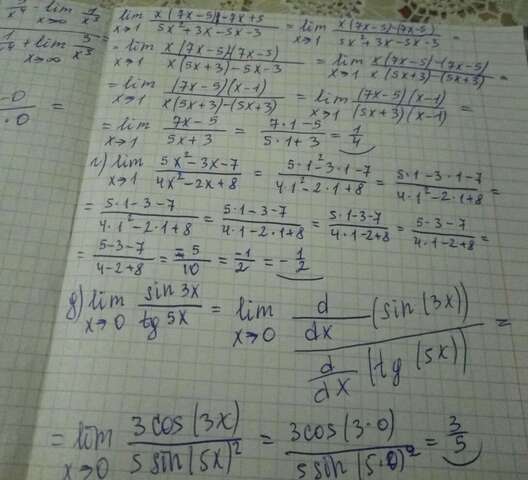 lim x→∞ 7/x³
lim x→1 x(7x-5)-7x+5 / 5x²+3x-5x-3 = lim x→1 x(7x-5)-(7x-5) / 5x²+3x-5x-3 =
1/x⁴ + lim x→∞ 3/x³
= lim x→1 x(7x-5)(7x-5) / x(5x+3)-5x-3 = lim x→1 x(7x-5)-(7x-5) / x(5x+3)-(5x+3) =
= lim x→1 (7x-5)(x-1) / x(5x+3)-(5x+3) = lim x→1 (7x-5)(x-1) / (5x+3)(x-1) =
= lim x→1 7x-5 / 5x+3 = 7·1-5 / 5·1+3 = 1/4
г) lim x→1 5x²-3x-7 / 4x²-2x+8 = 5·1²-3·1-7 / 4·1²-2·1+8 = 5·1-3·1-7 / 4·1²-2·1+8 =
= 5·1-3-7 / 4·1²-2·1+8 = 5·1-3-7 / 4·1-2·1+8 = 5·1-3-7 / 4·1-2+8 = 5-3-7 / 4·1-2+8 =
= 5-3-7 / 4-2+8 = -5/10 = -1/2 = -1/2
д) lim x→0 sin3x / tg5x = lim x→0 d/dx (sin(3x)) / d/dx (tg(5x)) =
= lim x→0 3cos(3x) / 5sin(5x)² = 3cos(3·0) / 5sin(5·0)² = 3/5